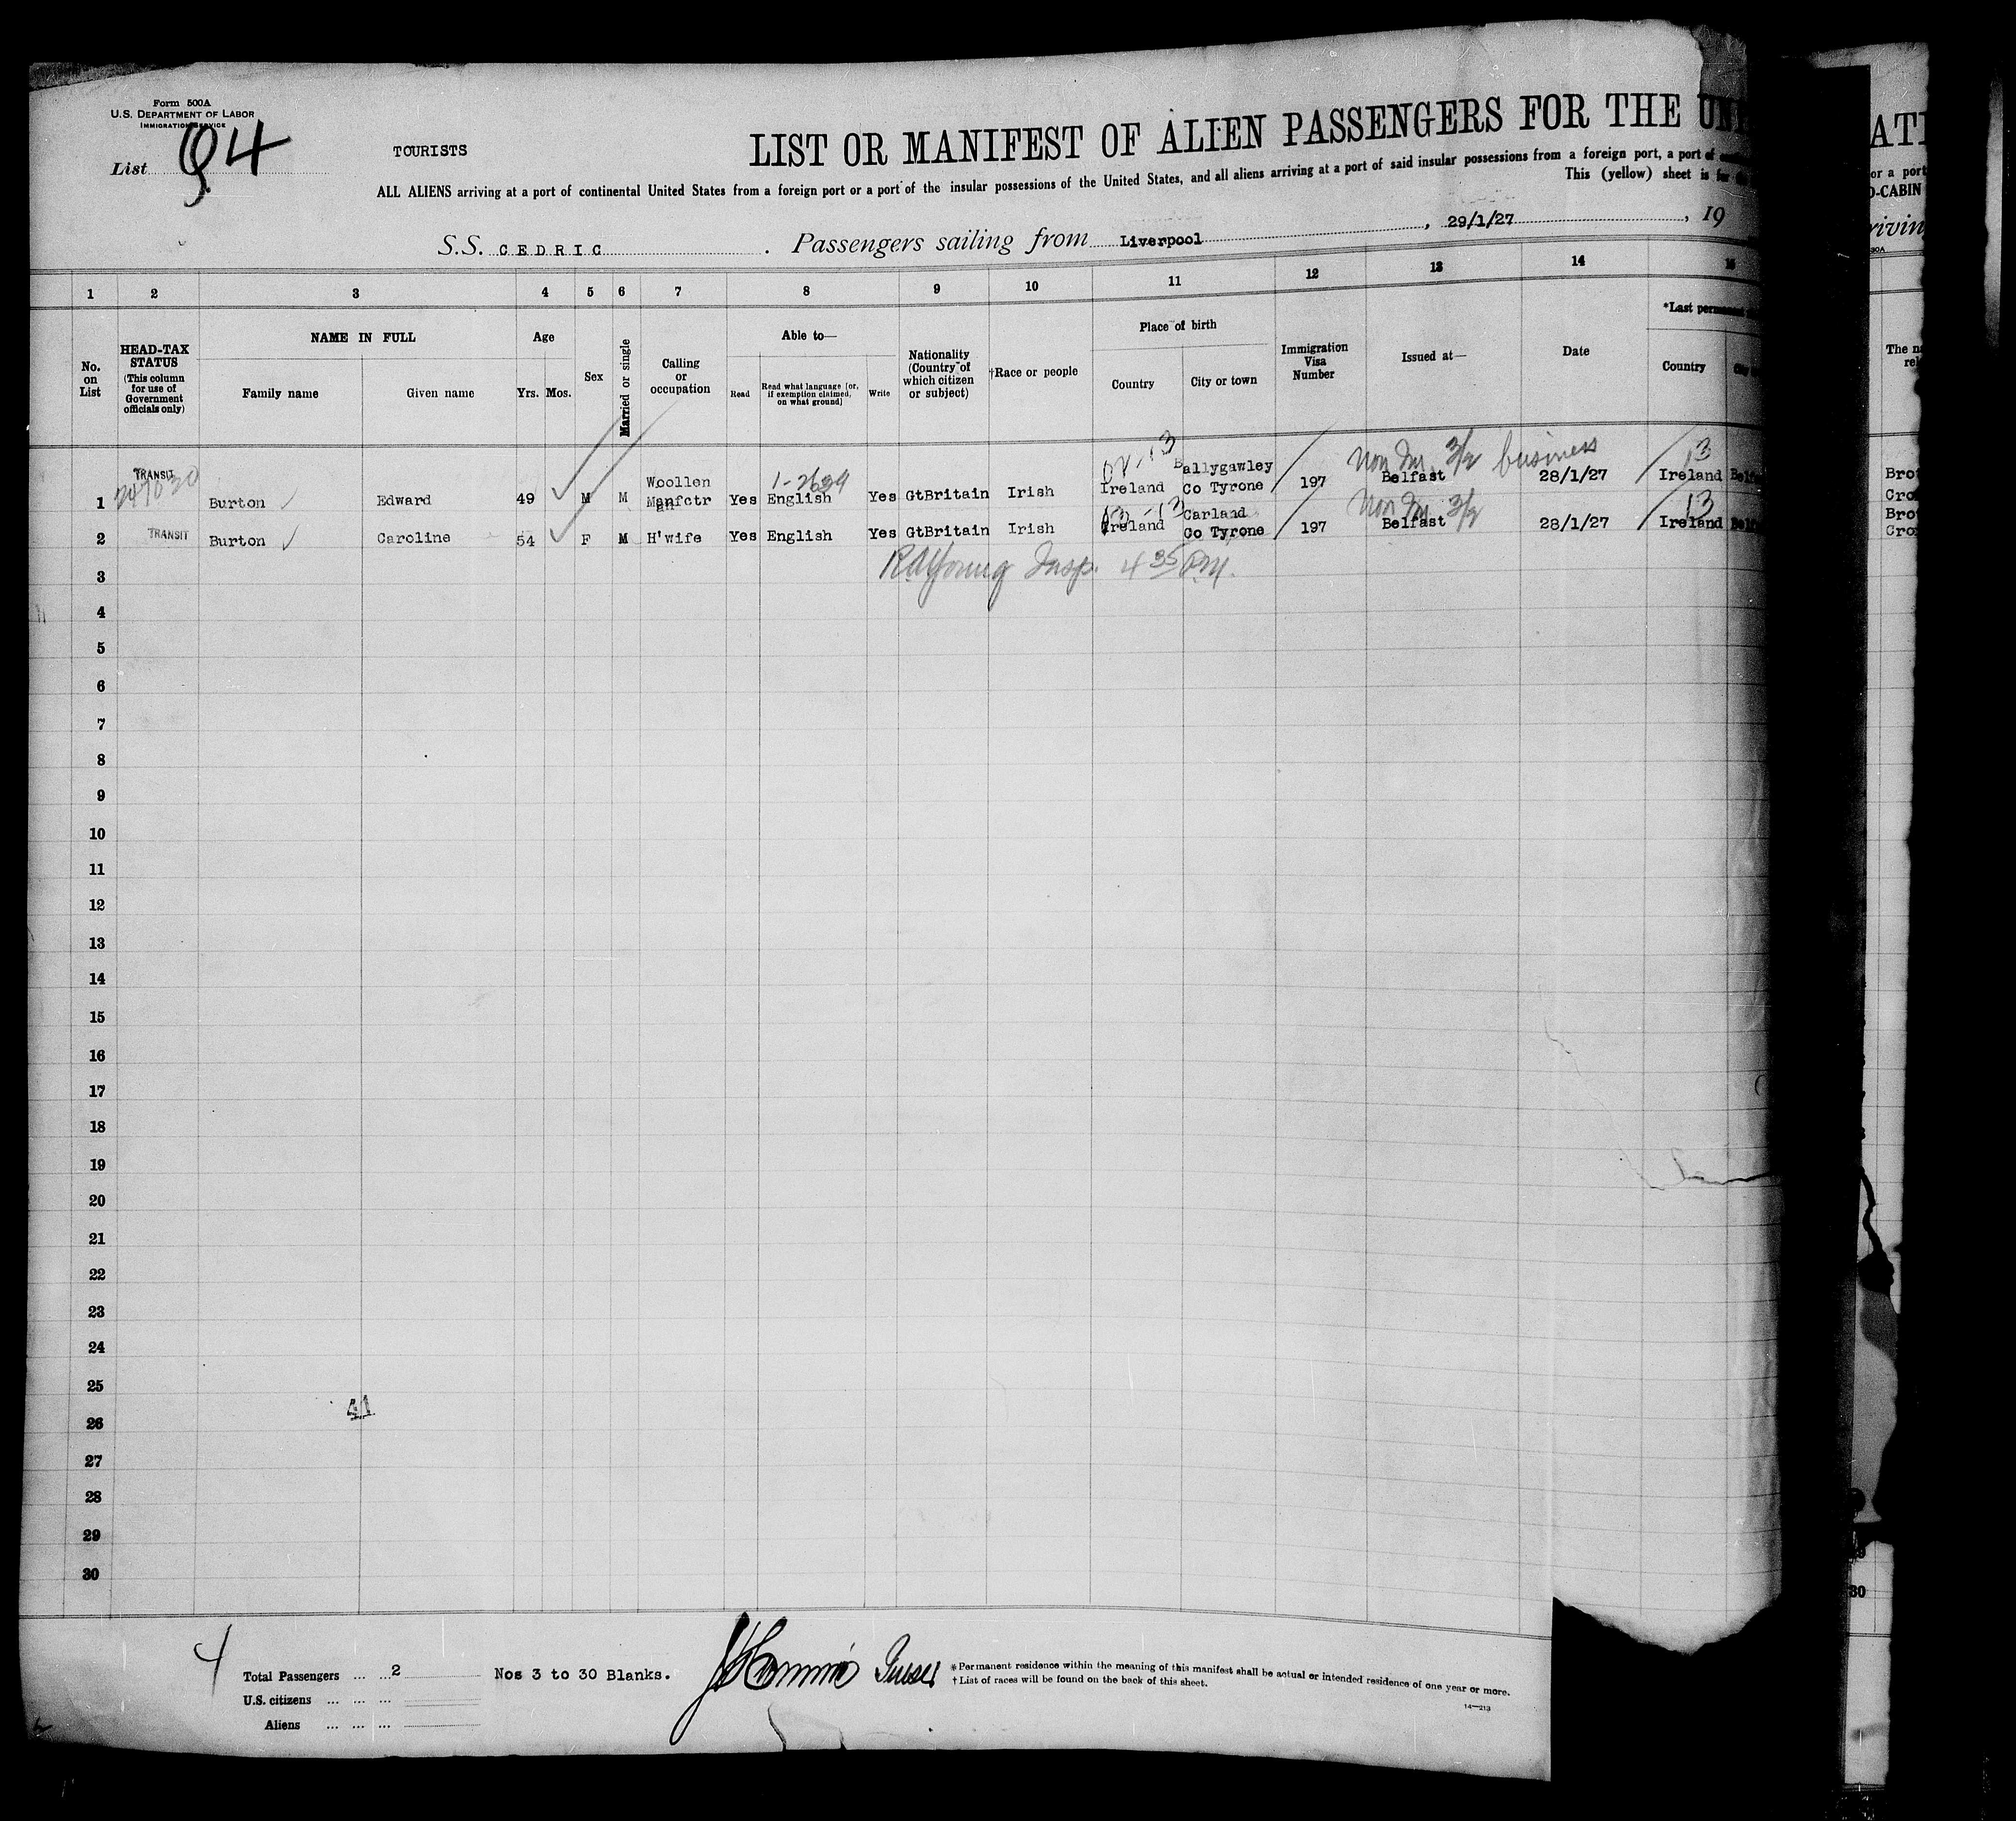 Form 500A
U.S. DEPARTMENT OF LABOR
IMMIGRATION SERVICE
List 94
TOURISTS
LIST OR MANIFEST OF ALIEN PASSENGERS FOR THE UN
ALL ALIENS arriving at a port of continental United States from a foreign port or a port of the insular possessions of the United States, and all aliens arriving at a port of said insular possessions from a foreign port, a port of
This (yellow) sheet is for
S.S. CEDRIC. Passengers sailing from Liverpool, 29/1/27, 19
1 2 3 4 5 6 7 8 9 10 11 12 13 14 15
HEAD-TAX STATUS (This column for use of Government officials only)
No. on List
NAME IN FULL
Family name Given name
Age
Yrs. Mos.
Sex
Married or single
Calling or occupation
Able to—
Read
Read what language [or, if exemption claimed, on what ground]
Write
Nationality (Country of which citizen or subject)
†Race or people
Place of birth
Country City or town
Immigration Visa Number
Issued at—
Date
*Last permanent
Country
1 TRANSIT Burton Edward 49 M M Woollen Manfctr Yes English 1-2639 Yes GtBritain Irish Ireland Ballygawley Co Tyrone 197 Belfast business 28/1/27 Ireland 13
2 TRANSIT Burton Caroline 54 F M H'wife Yes English Yes GtBritain Irish Ireland Carland Co Tyrone 197 Belfast 28/1/27 Ireland 13
3 RAYoung Insp. 4 35 P.M.
4
5
6
7
8
9
10
11
12
13
14
15
16
17
18
19
20
21
22
23
24
25
41
26
27
28
29
30
Total Passengers ... ... 2
Nos 3 to 30 Blanks.
U.S. citizens ... ... ...
Aliens ... ... ...
*Permanent residence within the meaning of this manifest shall be actual or intended residence of one year or more.
†List of races will be found on the back of this sheet.
14—213
ATI
or a port
D-CABIN
riving
The na
rel
Bro
Cro
Bro
Cro
30